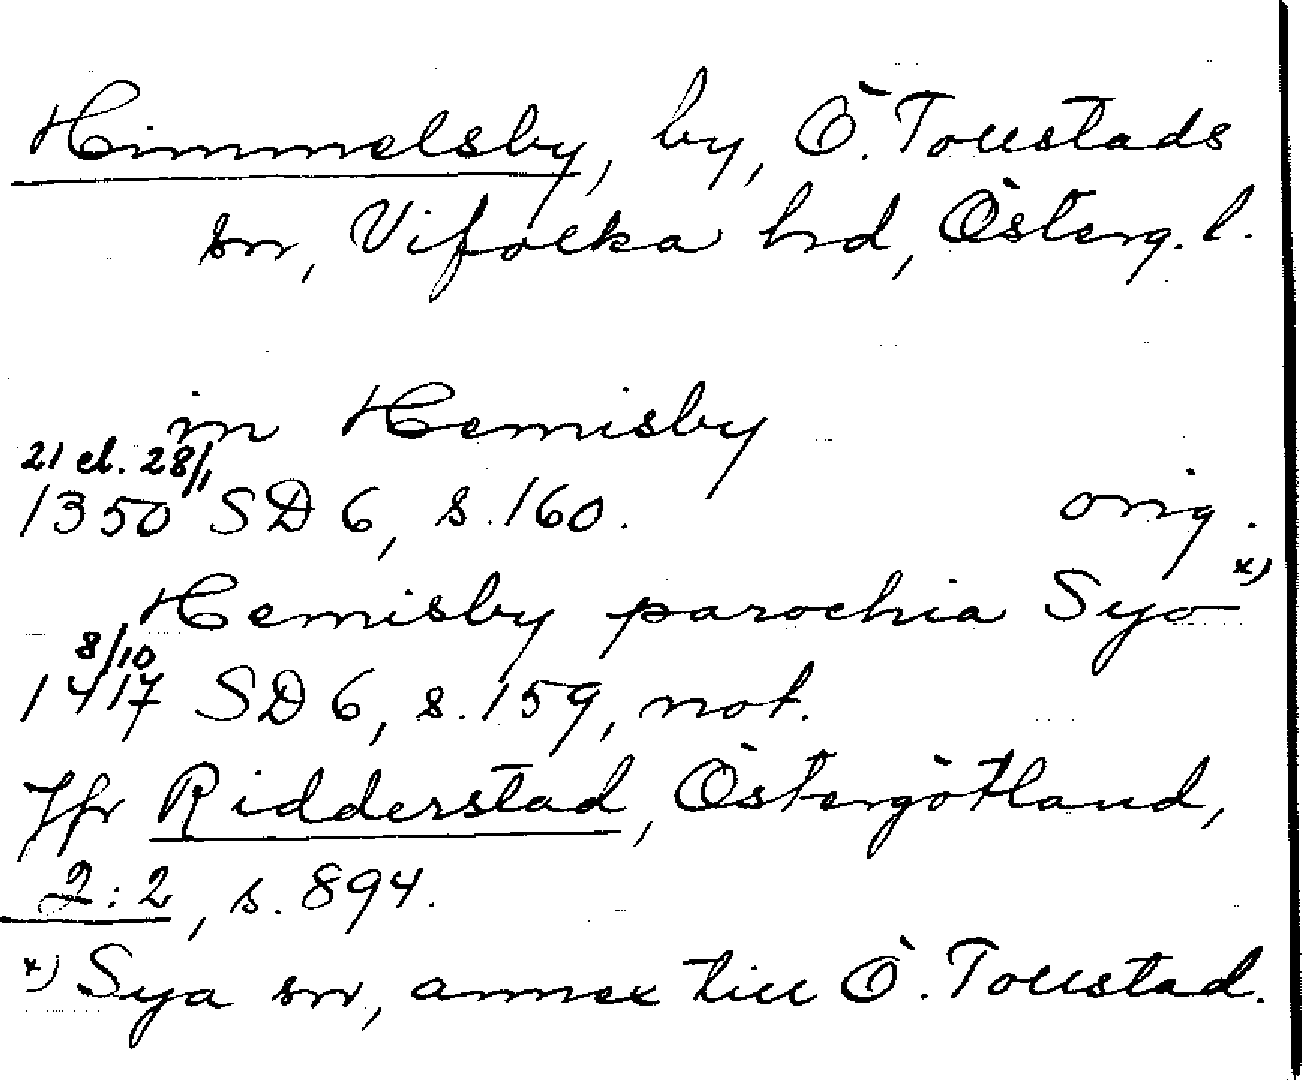 Himmelsby, by, Ö. Tollstads
sn, Vifolka hd, Österg. l.
in Hemisby
21 el. 28/1
1350 SD 6, s. 160. orig.
Hemisby parochia Syo x)
8/10
1417 SD 6, s. 159, not.
Jfr Ridderstad, Östergötland,
2:2, s. 894.
x) Sya sn, annex till Ö. Tollstad.